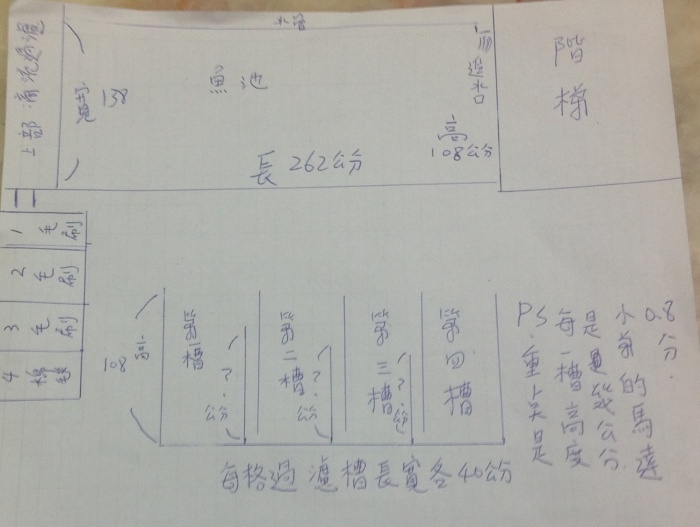 水管
上部滴流過濾
138
魚池
長262公分
高
108公分
溢水口
階梯
1毛刷
2毛刷
3毛刷
4棉
108
第一槽
公分?
第二槽
公分?
第三槽
公分?
第四槽
每格過濾槽長寬各40公分
PS.重點是
每一槽高度
是幾公分
小弟的馬達
0.8分.